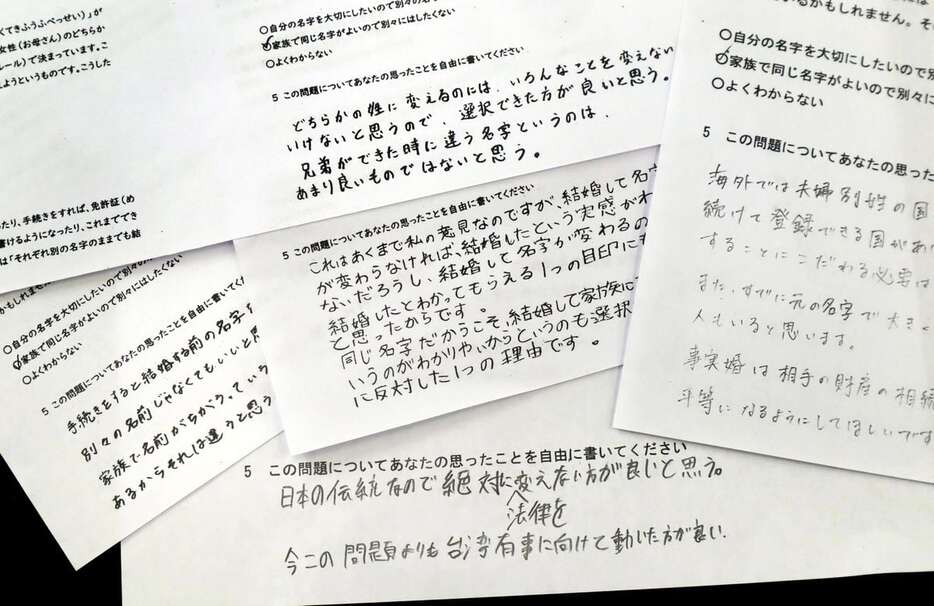 くてきふうふべっせい）」が
女性（お母さん）のどちらか
ルール）で決まっています。こ
ようというものです。こうした
たり、手続きをすれば、免許証（め
書けるようになったり、これまででき
は「それぞれ別の名字のままでも結
○自分の名字を大切にしたいので別々の名
○家族で同じ名字がよいので別々にはしたくない
○よくわからない
5 この問題についてあなたの思ったことを自由に書いてください
どちらかの姓に変えるのには、いろんなことを変えない
いけないと思うので、選択できた方が良いと思う。
兄弟ができた時に違う名字というのは、
あまり良いものではないと思う。
るかもしれません。そ
○自分の名字を大切にしたいので別
○家族で同じ名字がよいので別々に
○よくわからない
5 この問題についてあなたの思った
海外では夫婦別姓の国
続けて登録できる国があ
することにこだわる必要は
また、すでに元の名字で大きく
人もいると思います。
事実婚は相手の財産の相続
平等になるようにしてほしいです
5 この問題についてあなたの思ったことを自由に書いてください
これはあくまで私の意見なのですが、結婚して名字
が変わらなければ、結婚したという実感がわ
ないだろうし、結婚して名字が変わるの
結婚したとわかってもらえる1つの目印にも
と思ったからです。
同じ名字だからこそ、結婚して家族に
いうのがわかりやいかっというのも選択
に反対した1つの理由です。
かもしれませ
○自分の名字を大切にしたいので別々の
○家族で同じ名字がよいので別々にはしたくな
○よくわからない
5 この問題についてあなたの思ったことを自由に書いてく
手続きとると結婚する前の名字を
別々の名前じゃなくてもいいと
家族で名前がちがうっていう
あるからそれは違うと思う
5 この問題についてあなたの思ったことを自由に書いてください
日本の伝統なので絶対に変えない方が良いと思う。
法律を
今この問題よりも台湾有事に向けて動いた方が良い.